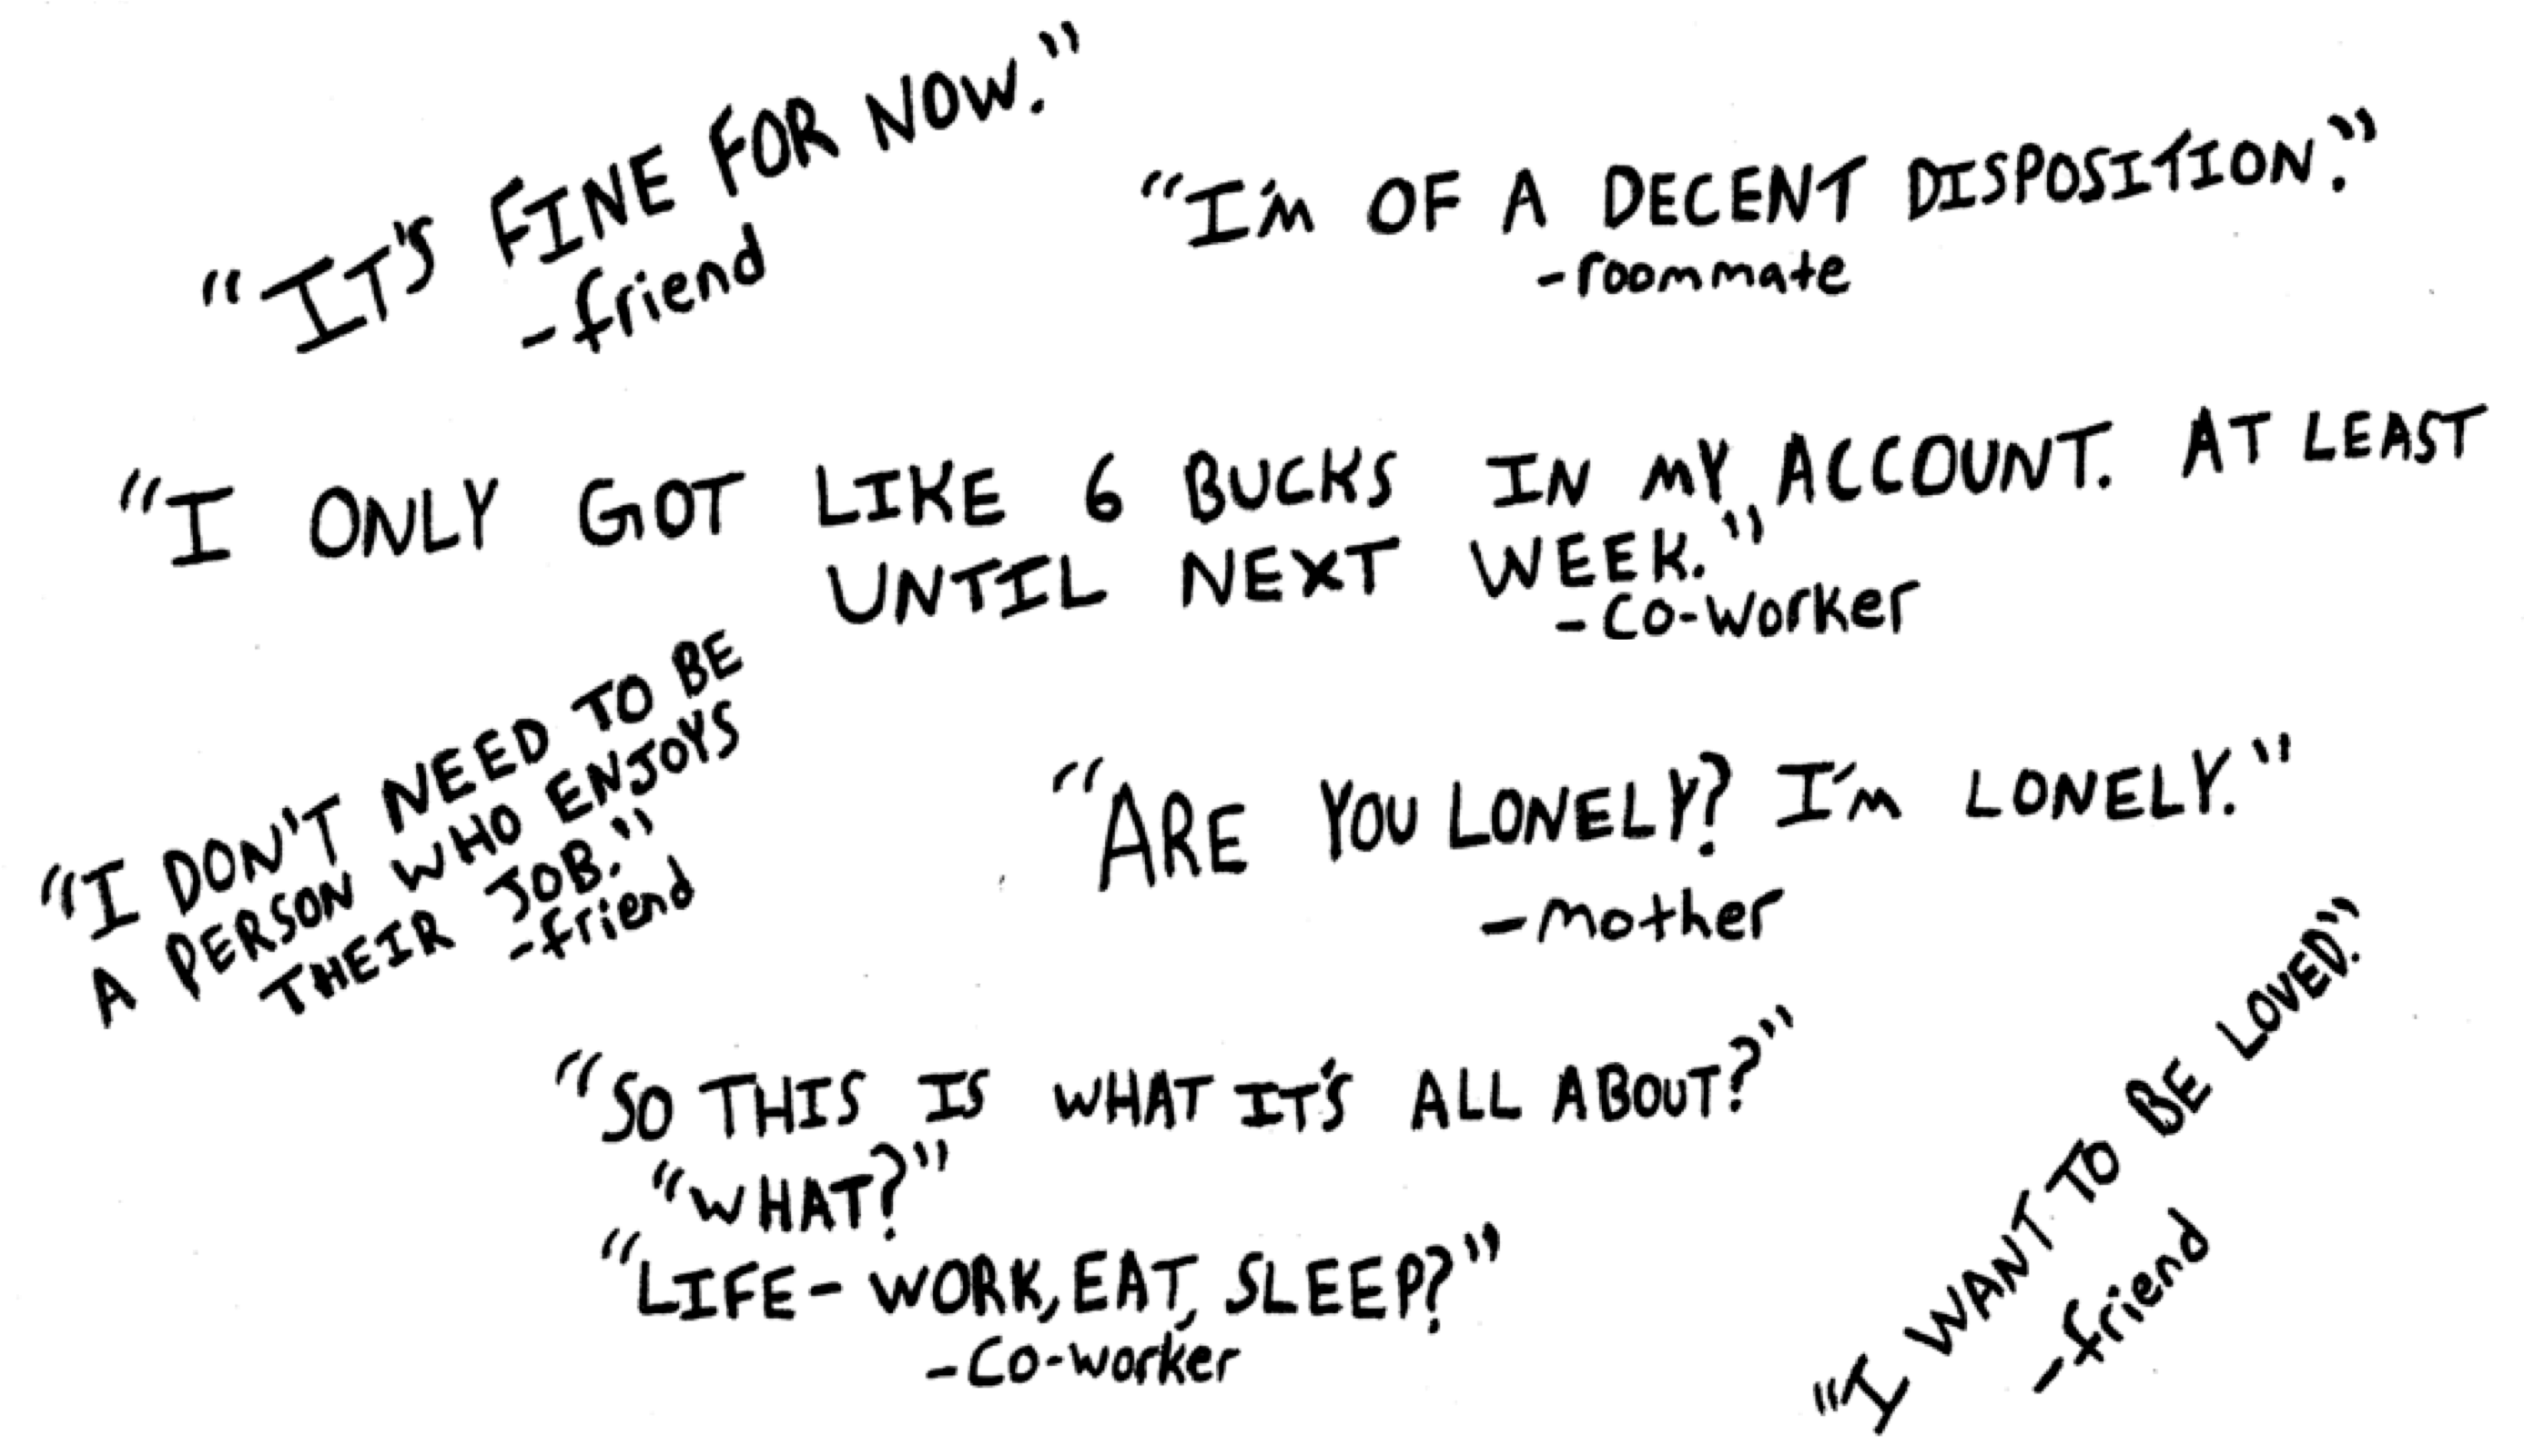 "IT'S FINE FOR NOW."
-friend
"I'M OF A DECENT DISPOSITION."
-roommate
"I ONLY GOT LIKE 6 BUCKS IN MY ACCOUNT. AT LEAST
UNTIL NEXT WEEK."
-Co-worker
"I DON'T NEED TO BE
A PERSON WHO ENJOYS
THEIR JOB."
-friend
"ARE YOU LONELY? I'M LONELY."
-mother
"SO THIS IS WHAT IT'S ALL ABOUT?"
"WHAT?"
"LIFE - WORK, EAT, SLEEP?"
-Co-worker
"I WANT TO BE LOVED."
-friend